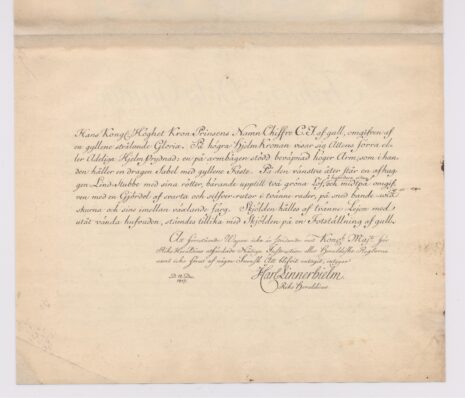 Hans Kongl. Höghet Kron-Prinsens Namn Chiffer C. J. af gull, omgifven af
en gyllene strålande Gloria. På högra Hjelm Kronan visar sig Ättens förra el-
ler Adeliga Hjelm Prydnad: en på armbågen stödd beväpnad höger Arm, som i han-
den håller en dragen Sabel med gyllene Fäste. På den vänstra åter står en afhug-
gen Lind-Stubbe med sina rötter, bärande upptill två gröna Löf, och midtpå omgif-
ven med en Gjördel af svarta och silfver-rutor i tvänne rader, på sned bande-
skurna och sins emellan växlande färg. Skjölden hålles af tvänne Lejon med
utåt vända hufvuden, stående tillika med Skjölden på en Fotställning af gull.
At förestående Wapen icke är stridande mot Kongl. Maj:ts för
Riks Heraldicus utfärdade Nådiga Instruction eller Heraldiske Reglerne
samt icke förut af någon Svensk Ätt blifvit antaget, intygar
Carl Linnerhielm
Riks Heraldicus